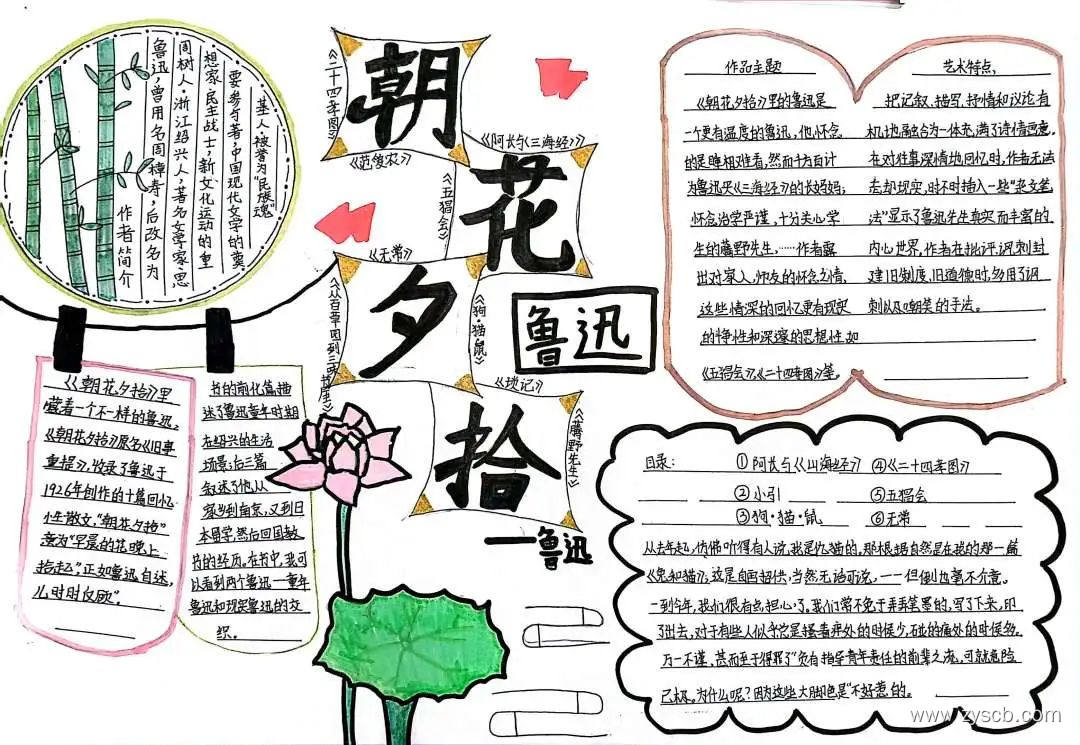 作者简介
鲁迅,曾用名周樟寿,后改名为
周树人。浙江绍兴人。著名文学家、思
想家、民主战士,新文化运动的重
要参与者,中国现代文学的奠
基人。被誉为"民族魂"
朝
花
夕
拾
《二十四孝图》
《范爱农》
《阿长与《三海经》》
《五猖会》
《无常》
《从百草园到三味书屋》
《狗·猫·鼠》
《琐记》
《藤野先生》
鲁迅
—鲁迅
作品主题
《朝花夕拾》里的鲁迅是
一个更有温度的鲁迅,他怀念
的是
为鲁迅买《三海经》的长妈妈;
怀念治学严谨,十分关心学
生的藤野先生,……作者露
出对家人,师友的怀念之情,
这些情深的回忆更有现实
的
和深邃的思想性,如
《五猖会》,《二十四孝图》等。
艺术特点,
把记叙、描写、抒情和议论有
机地融合为一体充,满了诗情画意。
在对往事深情地回忆时,作者无法
忘却现实,时不时插入一些"杂文笔
法"显示了鲁迅先生真实而丰富的
内心世界,作者在批评,讽刺封
建旧制度,旧道德时,多用了讽
刺以及嘲笑的手法。
《朝花夕拾》里
藏着一个不一样的鲁迅。
《朝花夕拾》原名《旧事
重提》,收录了鲁迅于
1926年创作的十篇回忆
小生散文,"朝花夕拾"
意为"早晨的花晚上
拾起",正如鲁迅自述,
时时反顾"。
书的前化篇描
述了鲁迅童年时期
在绍兴的生活
场景;后三篇
叙述了他从
家乡到南京,又到日
本留学,然后回国教
书的经历。在书中,我可
以看到两个鲁迅—童年
鲁迅和现实鲁迅的交
织。
目录: ①阿长与《山海经》 ④《二十四孝图》
②小引 ⑤五猖会
③狗·猫·鼠 ⑥无常
从去年起,仿佛听得有人说,我是仇猫的,那根据自然是在我的那一篇
《兔和猫》;这是自画招供,当然无话可说,——但倒也毫不介意。
一到今年,我们很有点担心了。我们常不免于弄弄笔墨的,写了下来,印
了出去,对于有些人似乎它是搔着痒处的时候少,碰的痛处的时候多。
万一不谨,甚而至于得罪了"负有指导青年责任的前辈之流,可就危险
已极。为什么呢?因为这些大脚色是"不好惹的。
www.zyscb.com